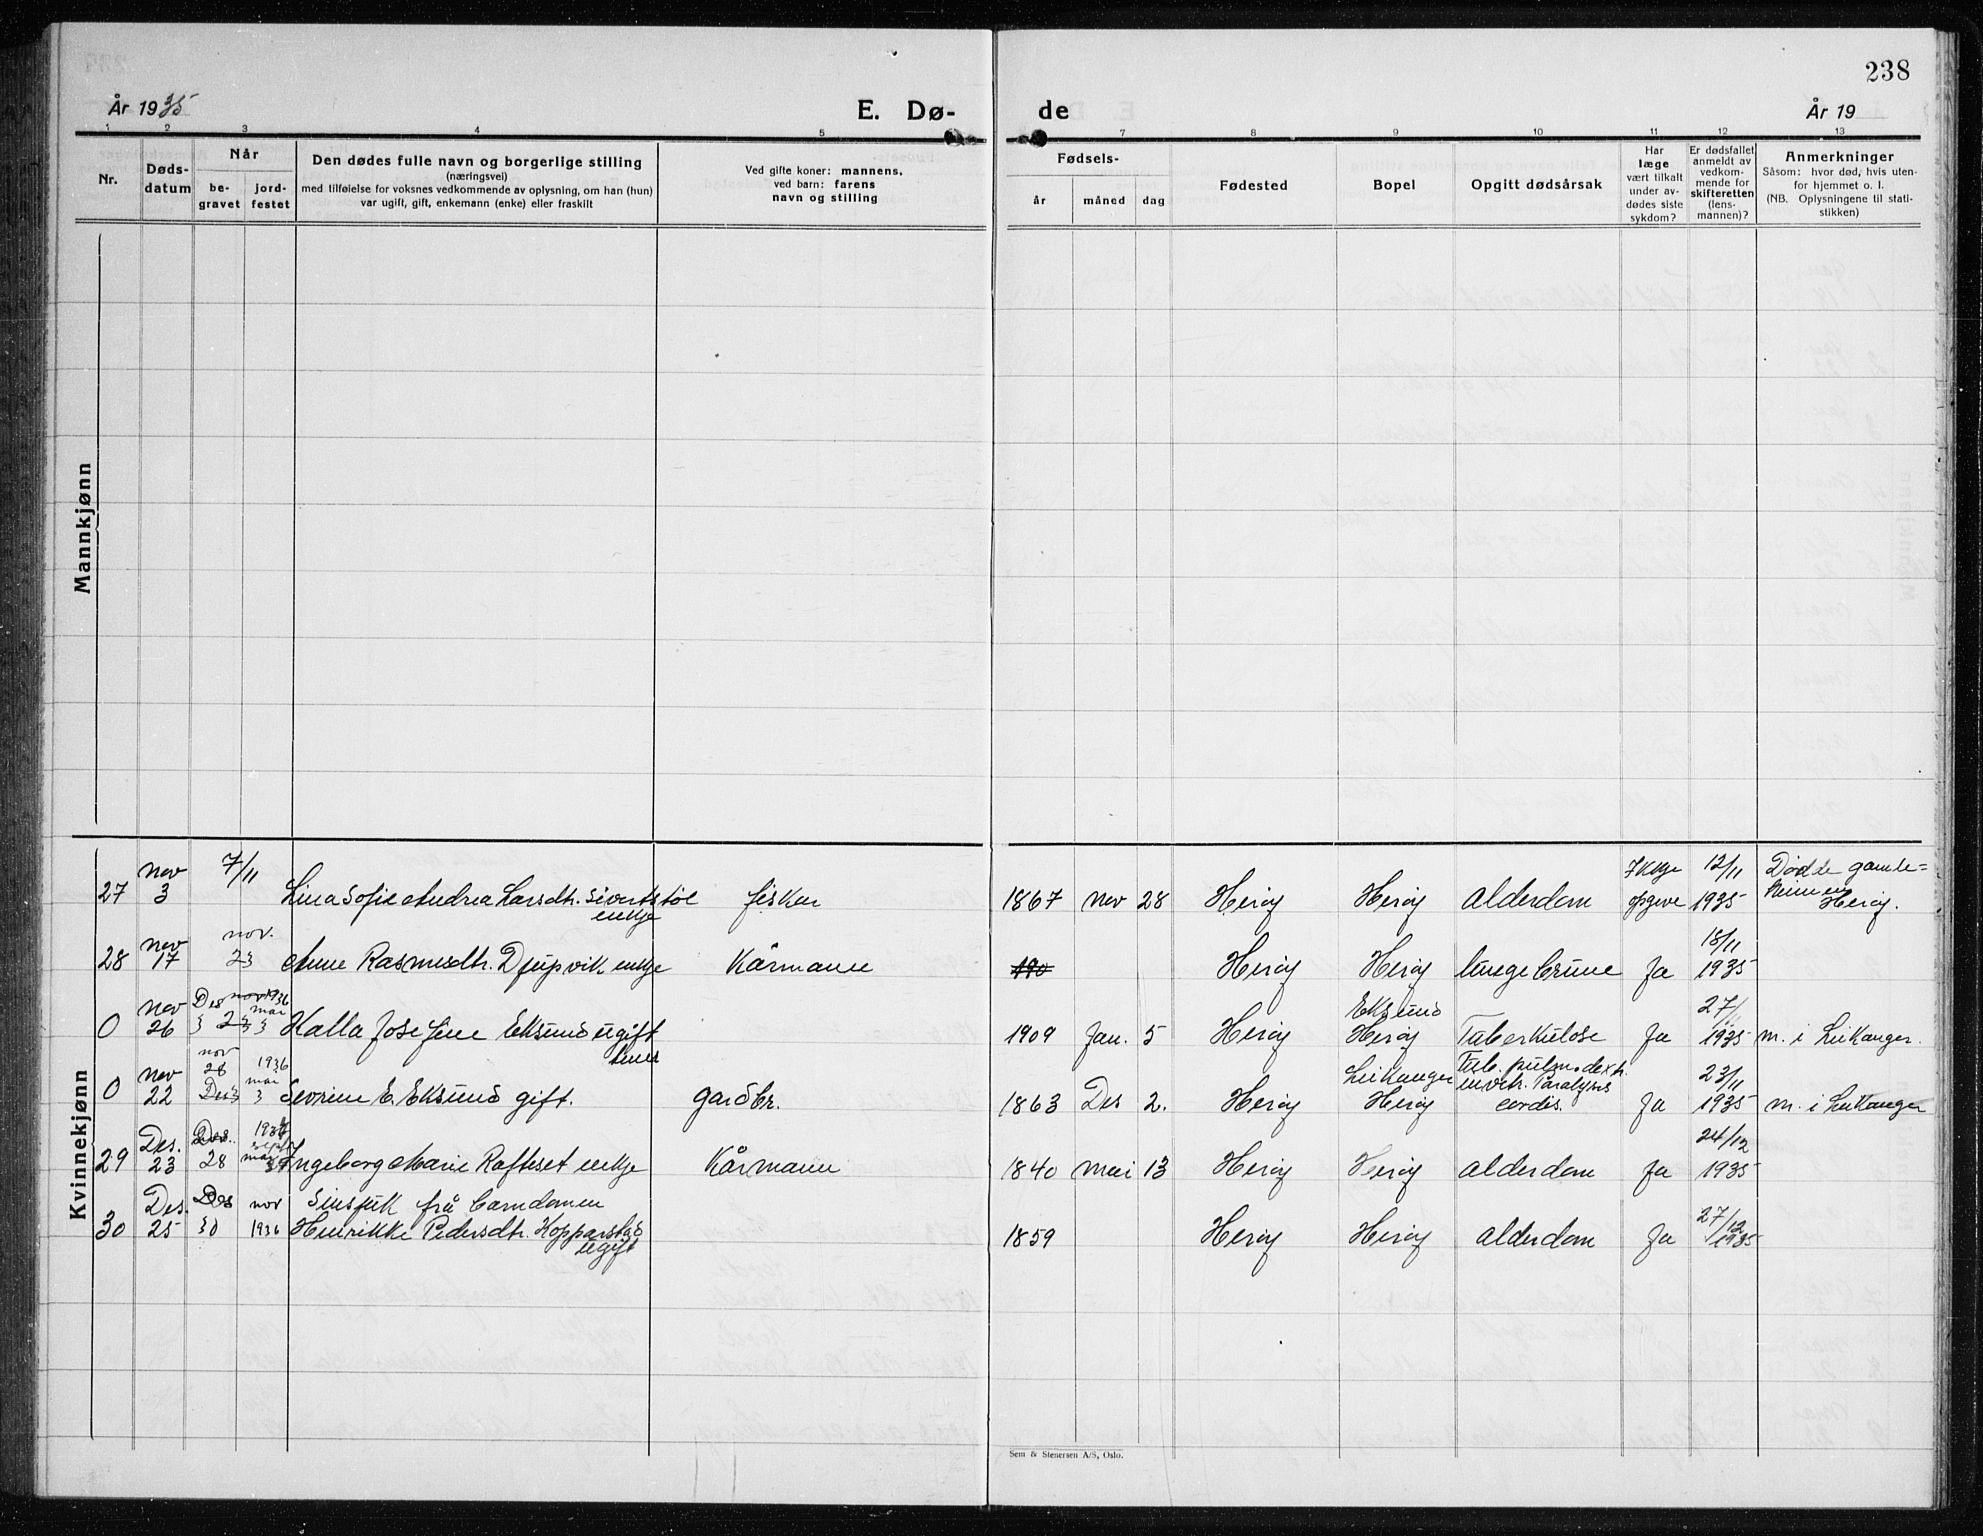 238
År 1935
E. Dø-
de
År 19
1 2 3 4 5 7 8 9 10 11 12 13
Nr.
Døds-
datum
Når
be-
gravet
jord-
festet
Den dødes fulle navn og borgerlige stilling
(næringsvei)
med tilføielse for voksnes vedkommende av oplysning, om han (hun)
var ugift, gift, enkemann (enke) eller fraskilt
Ved gifte koner: mannens,
ved barn: farens
navn og stilling
Fødsels-
år
måned
dag
Fødested
Bopel
Opgitt dødsårsak
Har
læge
vært tilkalt
under av-
dødes siste
sykdom?
Er dødsfallet
anmeldt av
vedkom-
mende for
skifteretten
(lens-
mannen)?
Anmerkninger
Såsom: hvor død, hvis uten-
for hjemmet o. l.
(NB. Oplysningene til stati-
stikken)
Mannkjønn
Kvinnekjønn
27 nov 3 7/11 Lina Sofie Andrea Larsdtr. Sivertstøl enkje fiskar 1867 nov 28 Herøy Herøy alderdom Ikkje opgeve 12/11 1935 Dødde gamle=heimen Herøy.
28 nov 17 nov. 23 Anne Rasmusdtr. Djupvik enkje Kårmann 190 Herøy Herøy lungebrune Ja 18/11 1935
0 nov 26 Des 3 nov 23 1936 mai 3 Kalla Josefine Eksund ugift 1909 Jan. 5 Herøy Eksund Herøy Tuberkulose Ja 27/11 1935 m. i Leikanger.
0 nov 22 nov 28 Des 3 1936 mai 3 Sevrine E. Eksund gift. gardbr. 1863 Des 2. Herøy Leikanger Herøy Tub. pulm. dextr. Paralysis cordis. Ja 23/11 1935 m. i Leikanger
29 Des. 23 Des. 28 Ingeborg Marie Rafteset enkje Kårmann 1840 mai 13 Herøy Herøy alderdom Ja 24/12 1935
30 Des. 25 Des 30 nov 1936 Sinsjuk frå barndomen
Henrikke Pedersdtr. Kopparstad ugift 1859 Herøy Herøy alderdom Ja 27/12 1935
Sem & Stenersen A/S, Oslo.